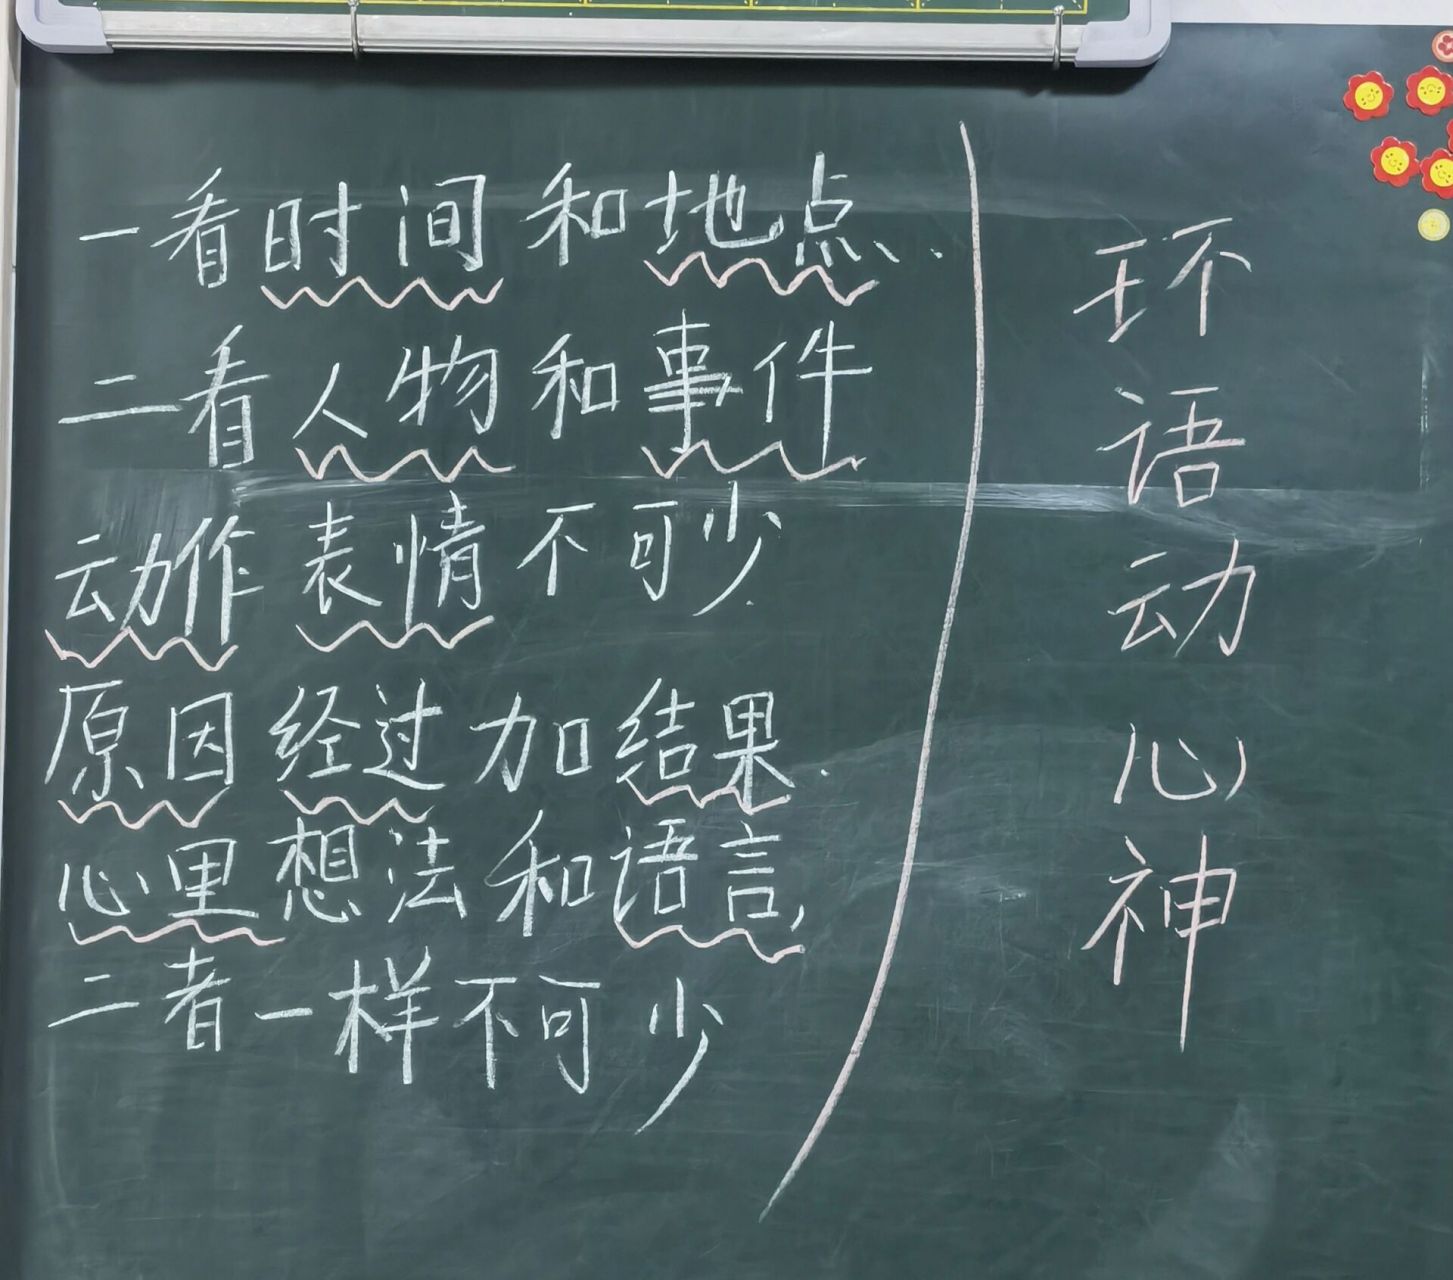 一看时间和地点、
二看人物和事件
动作表情不可少
原因经过加结果.
心里想法和语言,
二者一样不可少
环
语
动
心
神